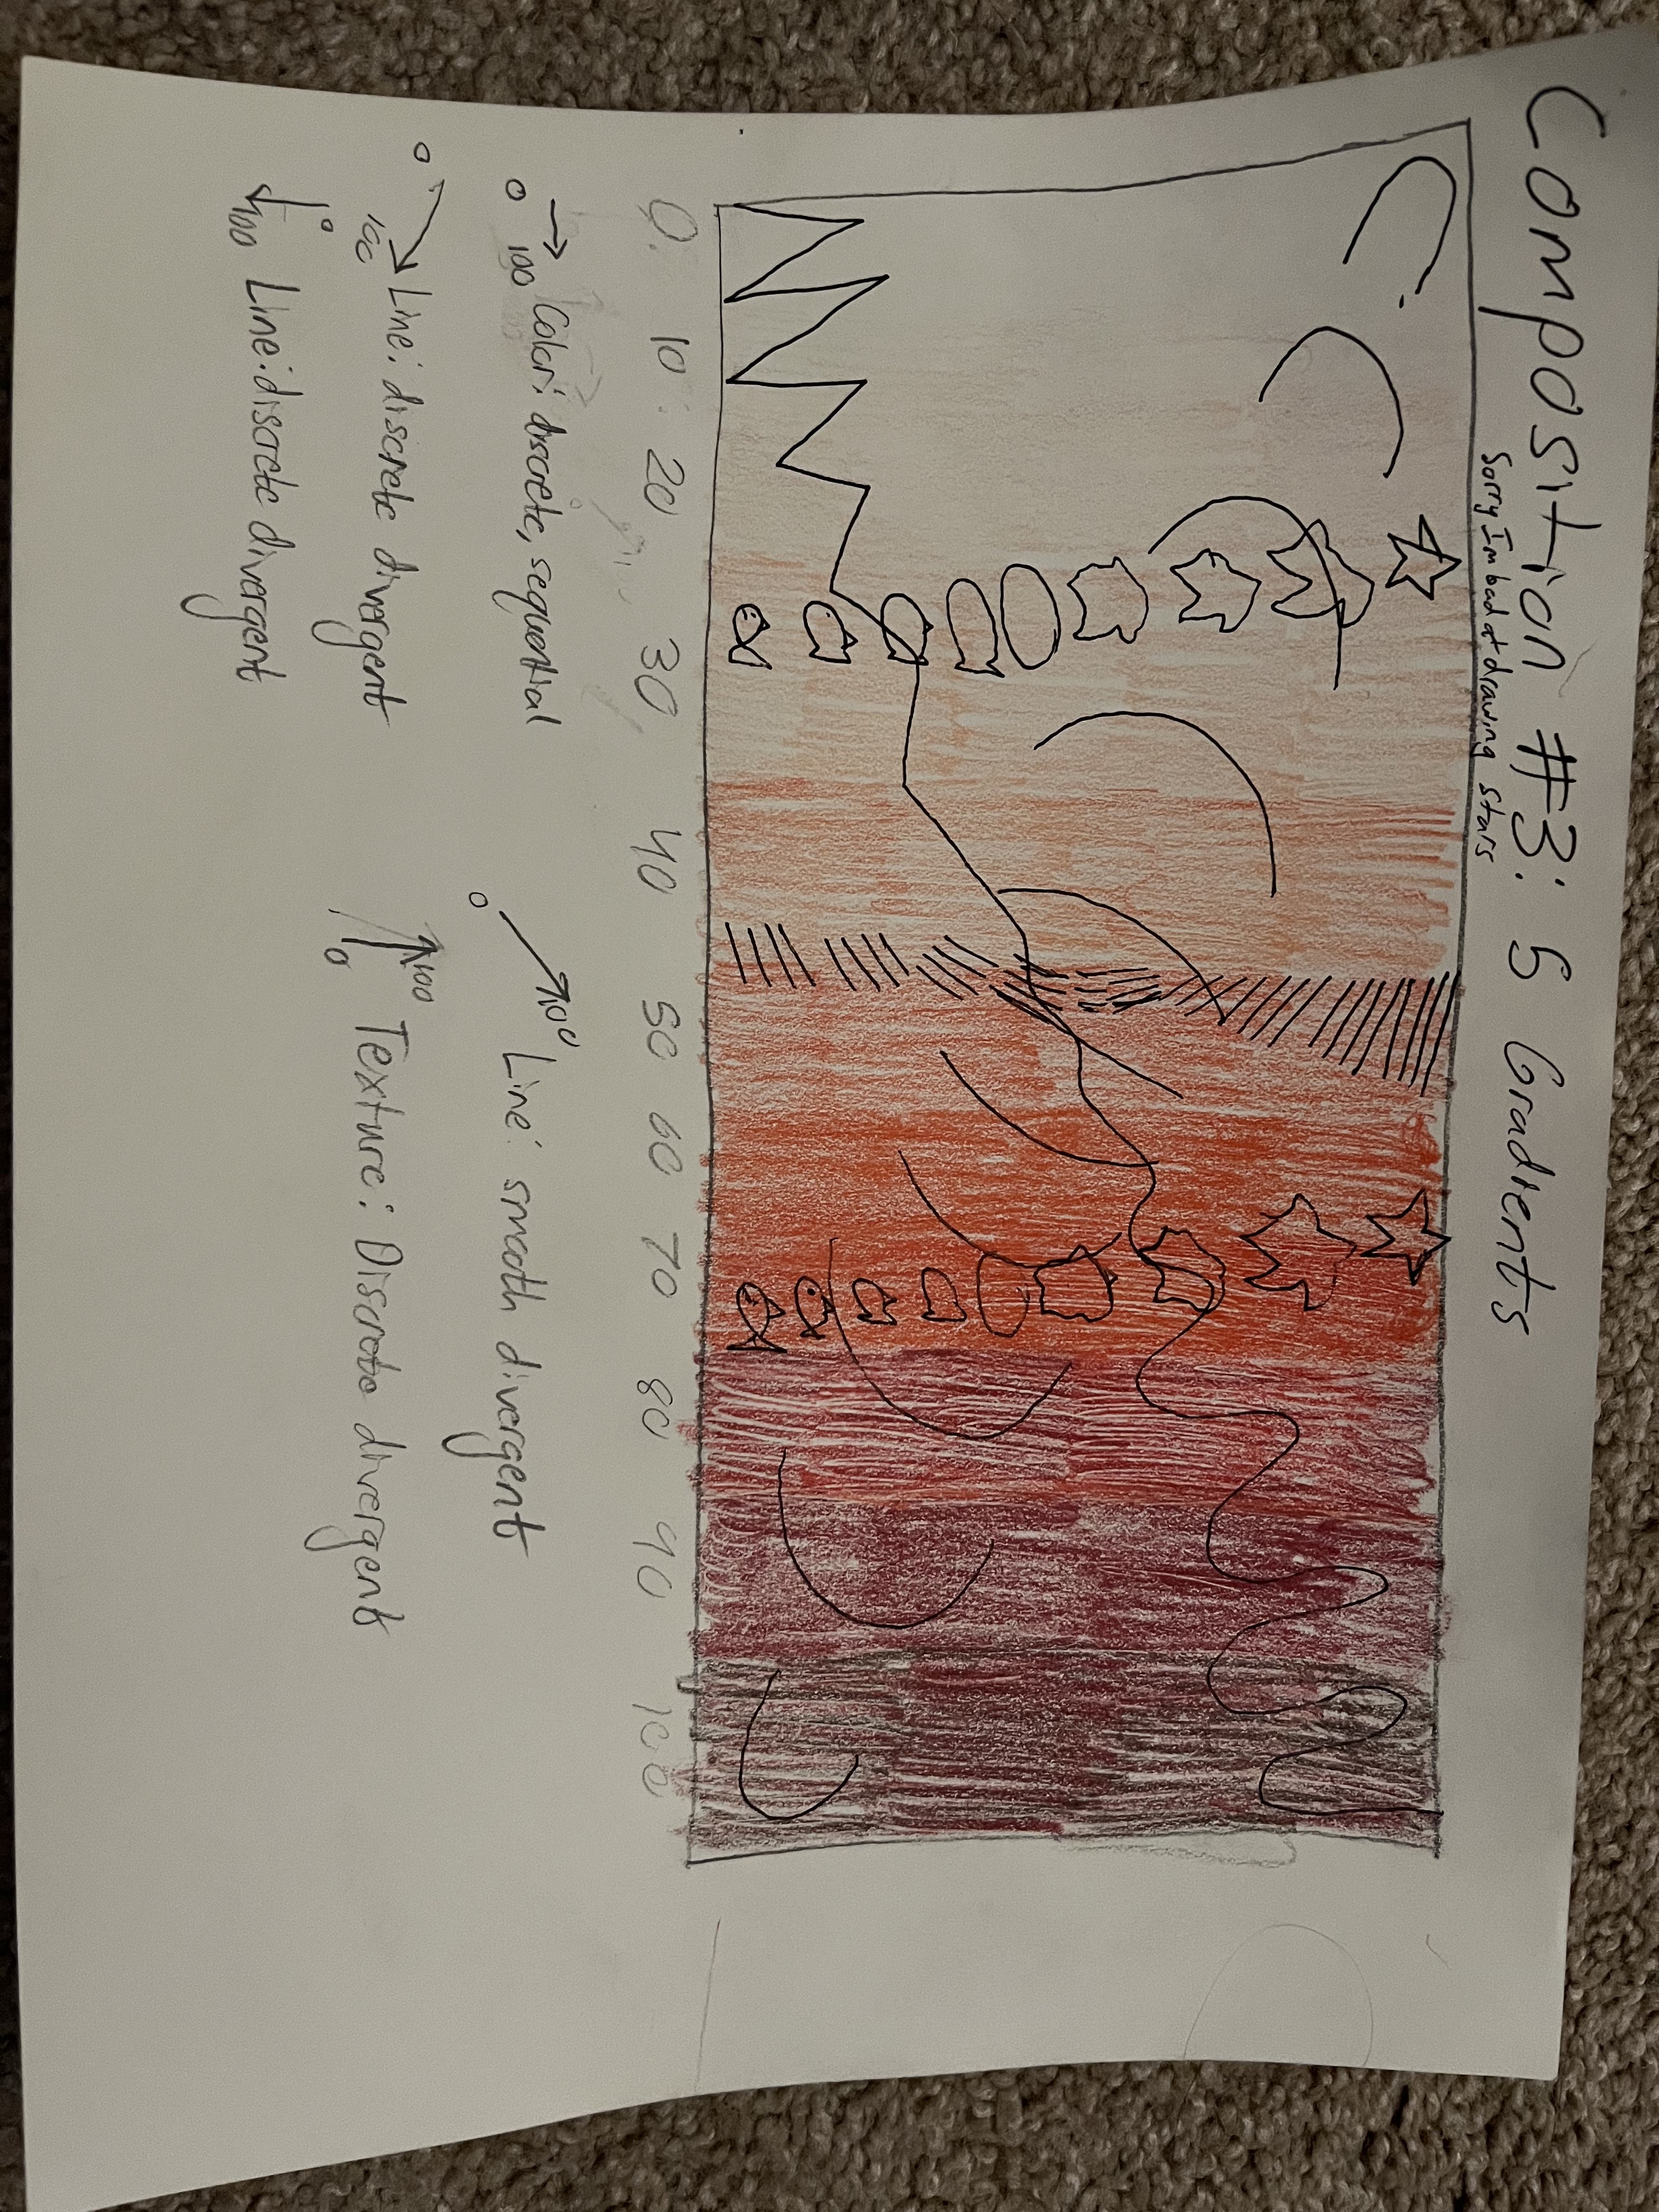 Composition #3: 5 Gradients
Sorry Im bad at drawing stars
0. 10 20 30 40 50 60 70 80 90 100
0 → 100 Color: discrete, sequential
0 100 Line: smooth divergent
0 100 Line: discrete divergent
100 0 Texture: Discrete divergent
0 100 Line: discrete divergent